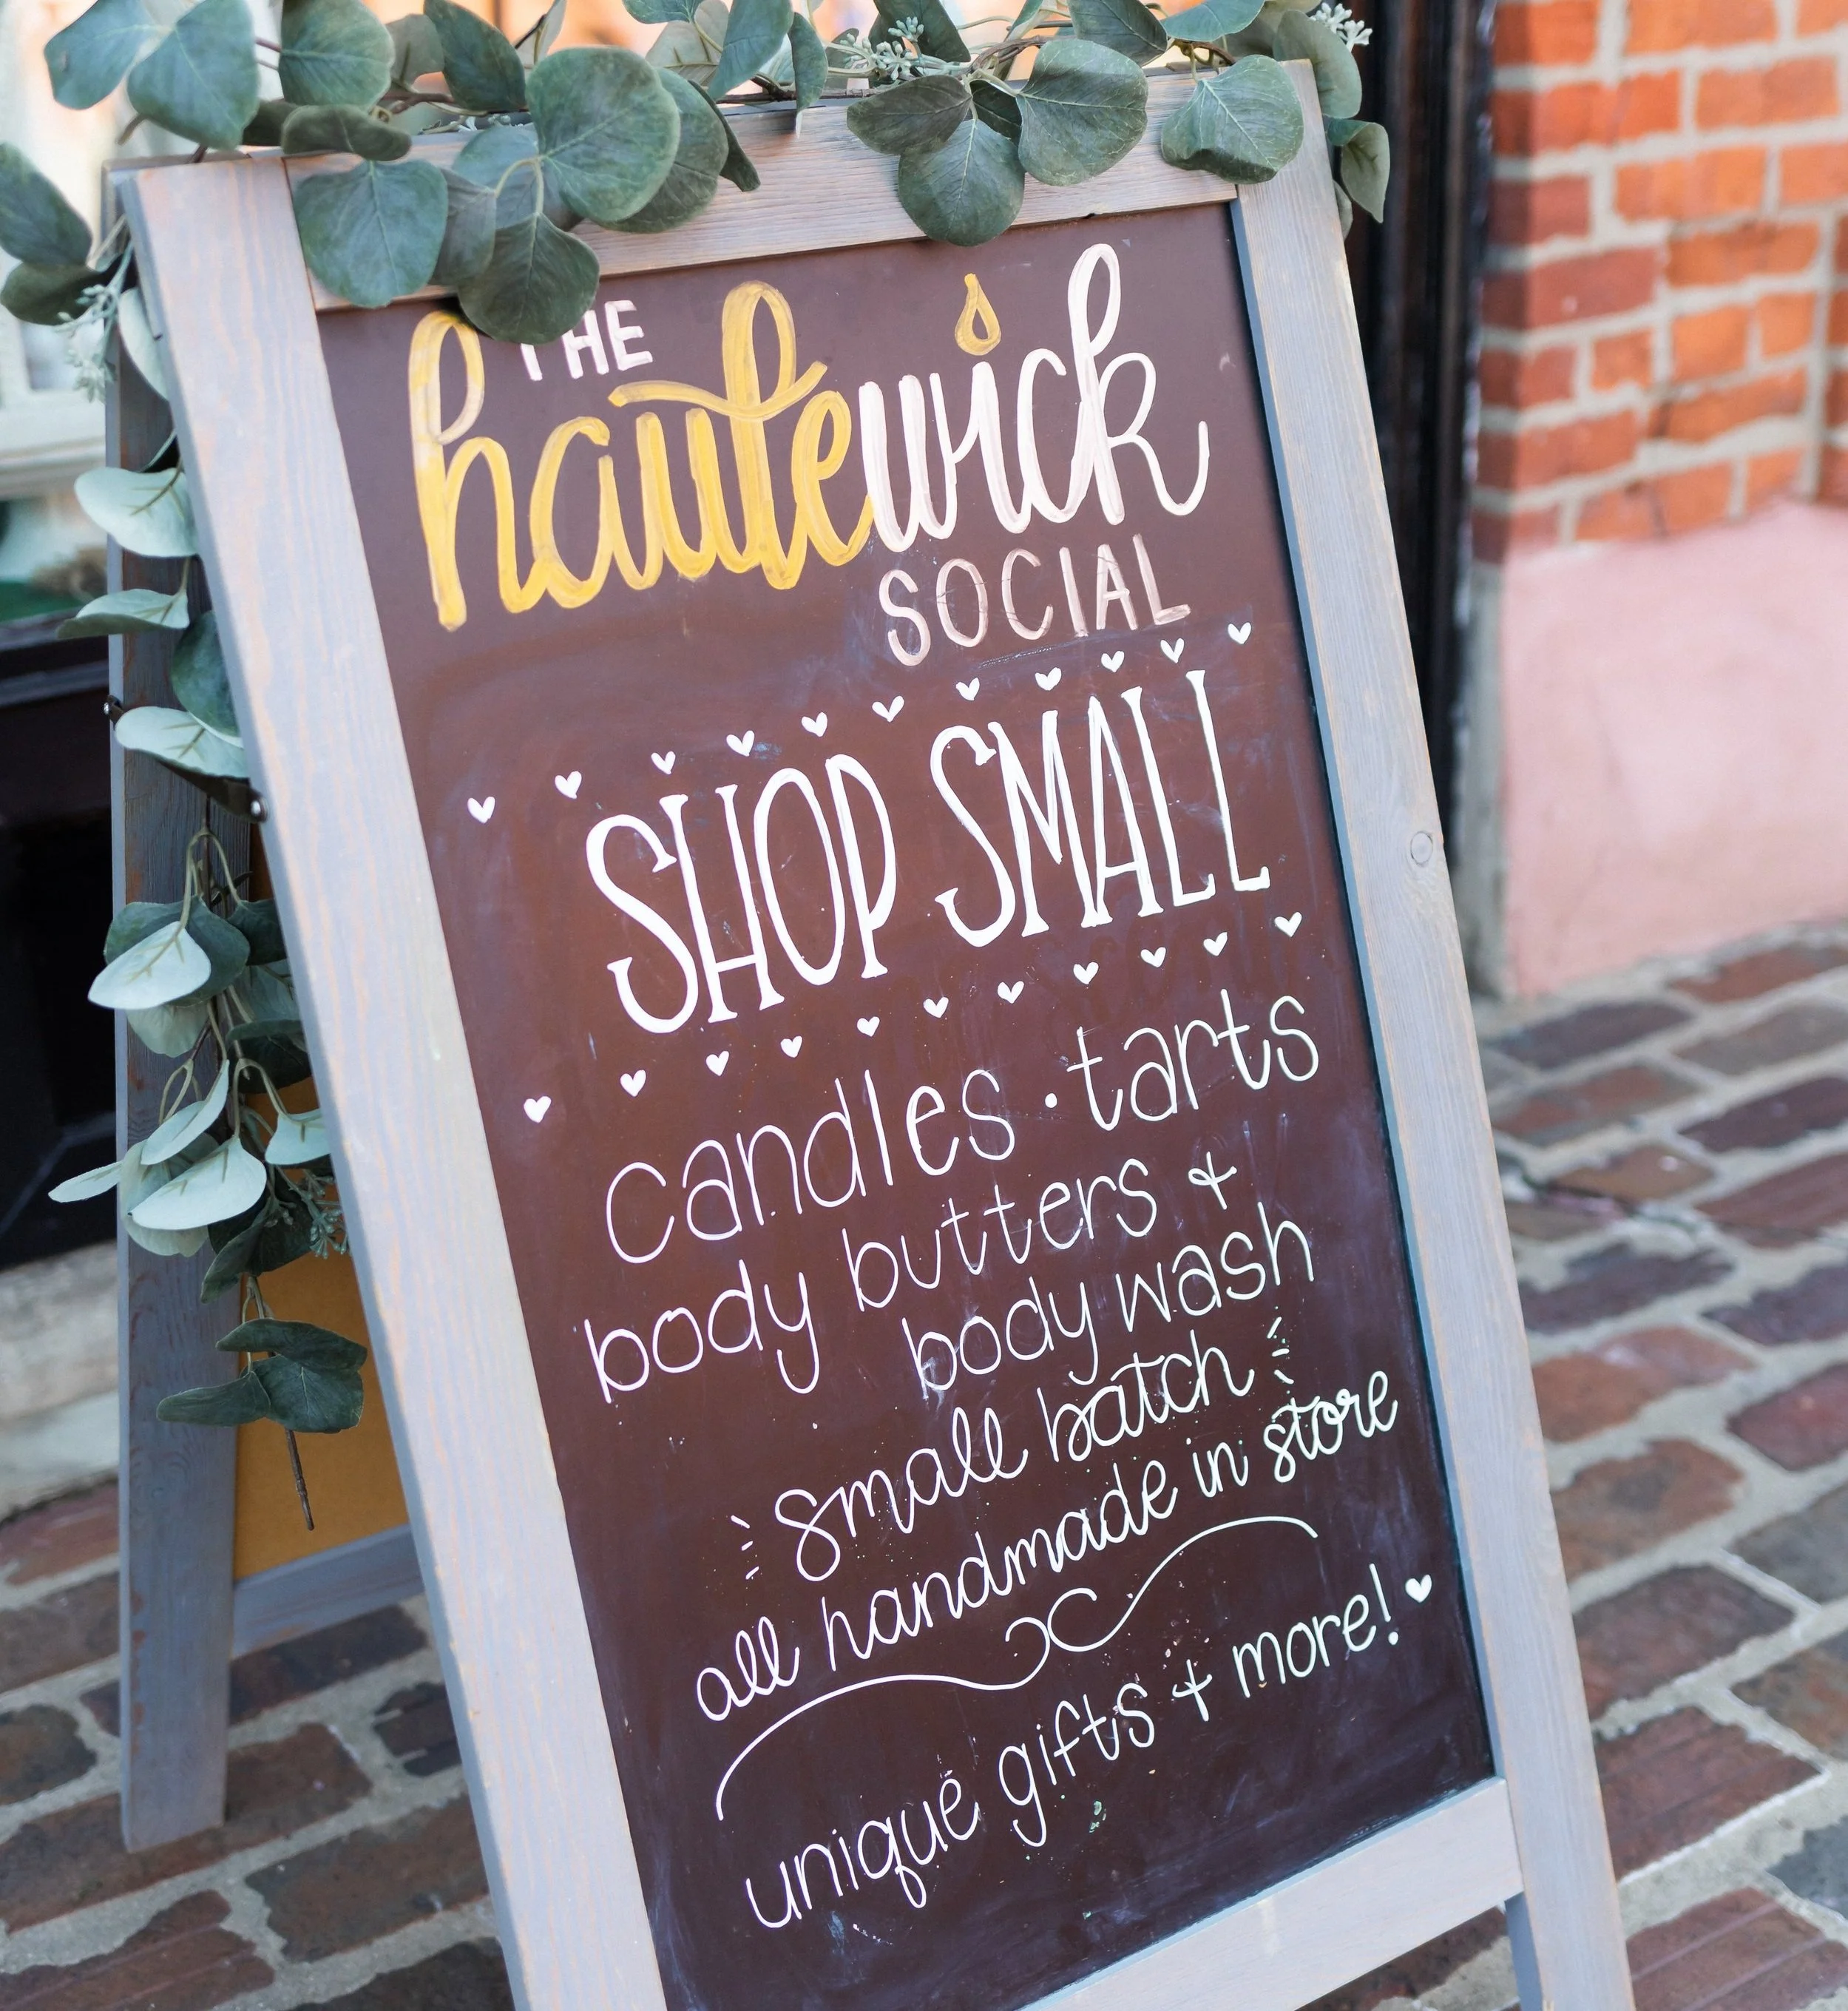 THE
hautewick
SOCIAL
SHOP SMALL
candles · tarts
body butters +
body wash
small batch
all handmade in store
unique gifts + more!